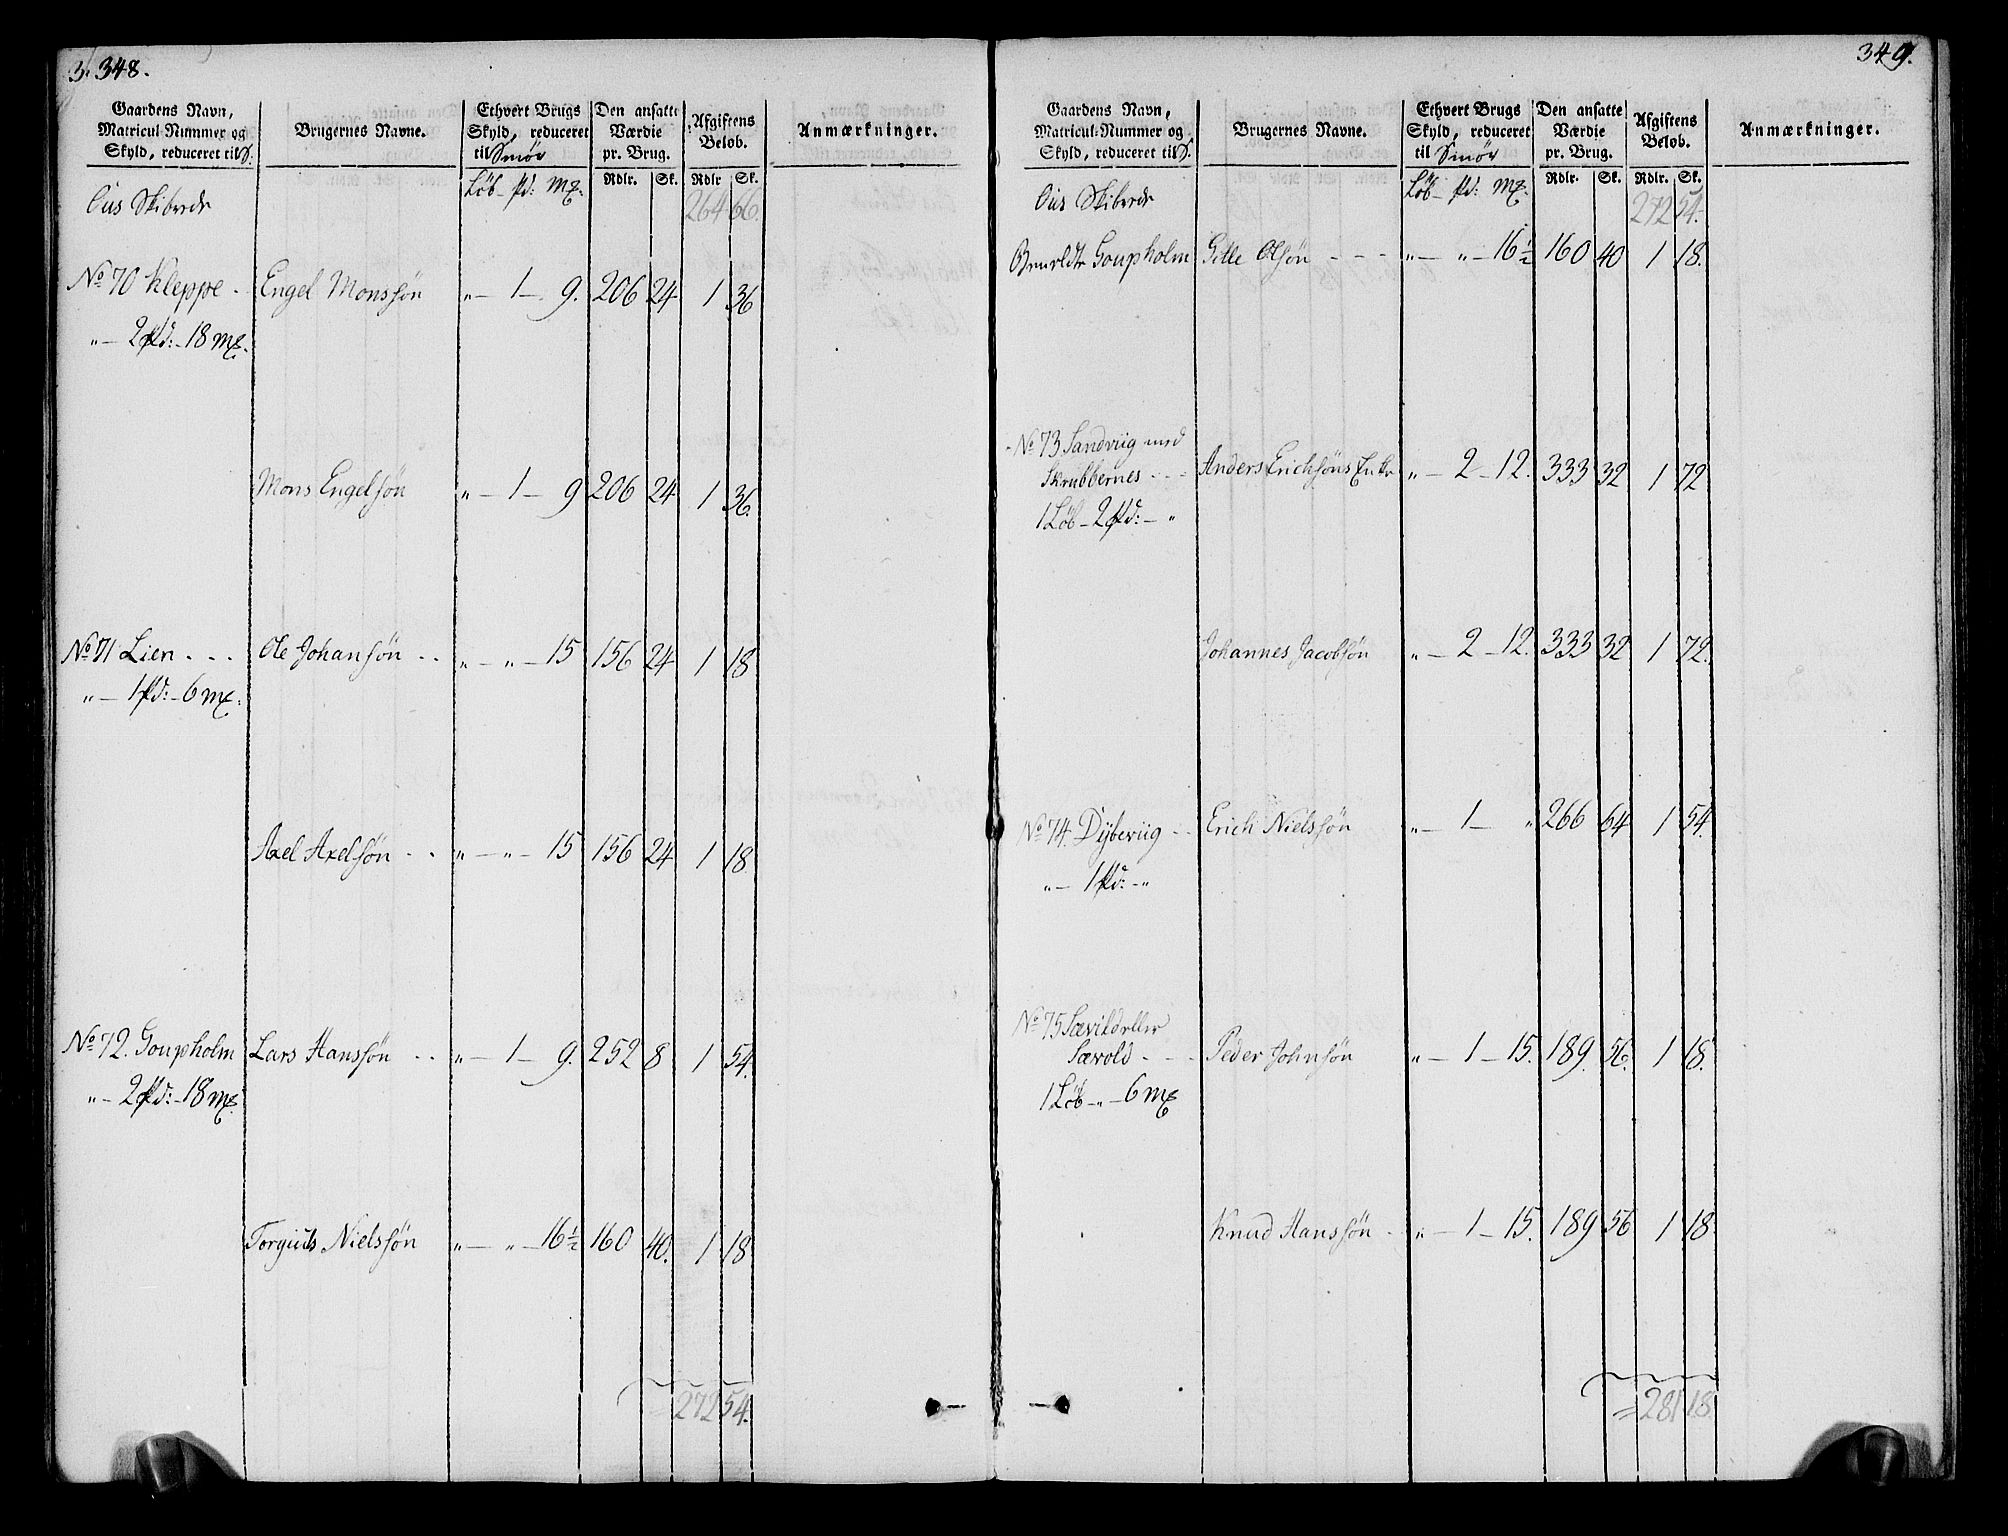 348.
Gaardens Navn, Matricul-Nummer og Skyld, reduceret til S. | Brugernes Navne. | Ethvert Brugs Skyld, reduceret til Smör | Den ansatte Værdie pr. Brug. | Afgiftens Beløb. | Anmærkninger.
Löb – Pd: Mg. | Rdlr. | Sk. | Rdlr | Sk.
Ous Skibrede 264 66.
No 70 Kleppe Engel Monssøn „ – 1 – 9. 206 24 1 36
„ – 2 Pd: – 18 Mg.
Mons Engelsøn „ – 1 – 9 206 24 1 36.
No 71 Lien . . . Ole Johansøn . . „ – „ – 15 156 24 1 18
„ – 1 Pd: – 6 Mg.
Axel Axelsøn . . „ – „ – 15 156 24 1 18
No 72. Goupholm Lars Hanssøn . . „ – 1 – 9. 252 8 1 54.
„ – 2 Pd: – 18 Mg.
Torguls Nielssøn „ – „ – 16½ 160 40. 1 18
272 54.
349.
Gaardens Navn, Matricul-Nummer og Skyld, reduceret til S. | Brugernes Navne. | Ethvert Brugs Skyld, reduceret til Smör | Den ansatte Værdie pr. Brug. | Afgiftens Beløb. | Anmærkninger.
Löb – Pd: Mg. | Rdlr. | Sk. | Rdlr. | Sk.
Ous Skibrede 272 54.
Goupholm Gitle Olsøn – – – „ – „ – 16½ 160 40 1 18.
No 73 Sandviig med
Skrubbernes . . . Anders Erichsøns Enke „ – 2 – 12. 333 32 1 72
1 Løb – 2 Pd: – „
Johannes Jacobsøn „ – 2 – 12. 333 32 1 72.
No 74. Dybeviig Erich Nielssøn „ – 1 – „ 266 64 1 54.
„ – 1 Pd: – „
No 75 Sævild eller
Sævold . . . Peder Johnsøn „ – 1 – 15. 189. 56. 1 18.
1 Løb – „ – 6 Mg
Knud Hanssøn „ – 1 – 15. 189 56 1 18
281 18.